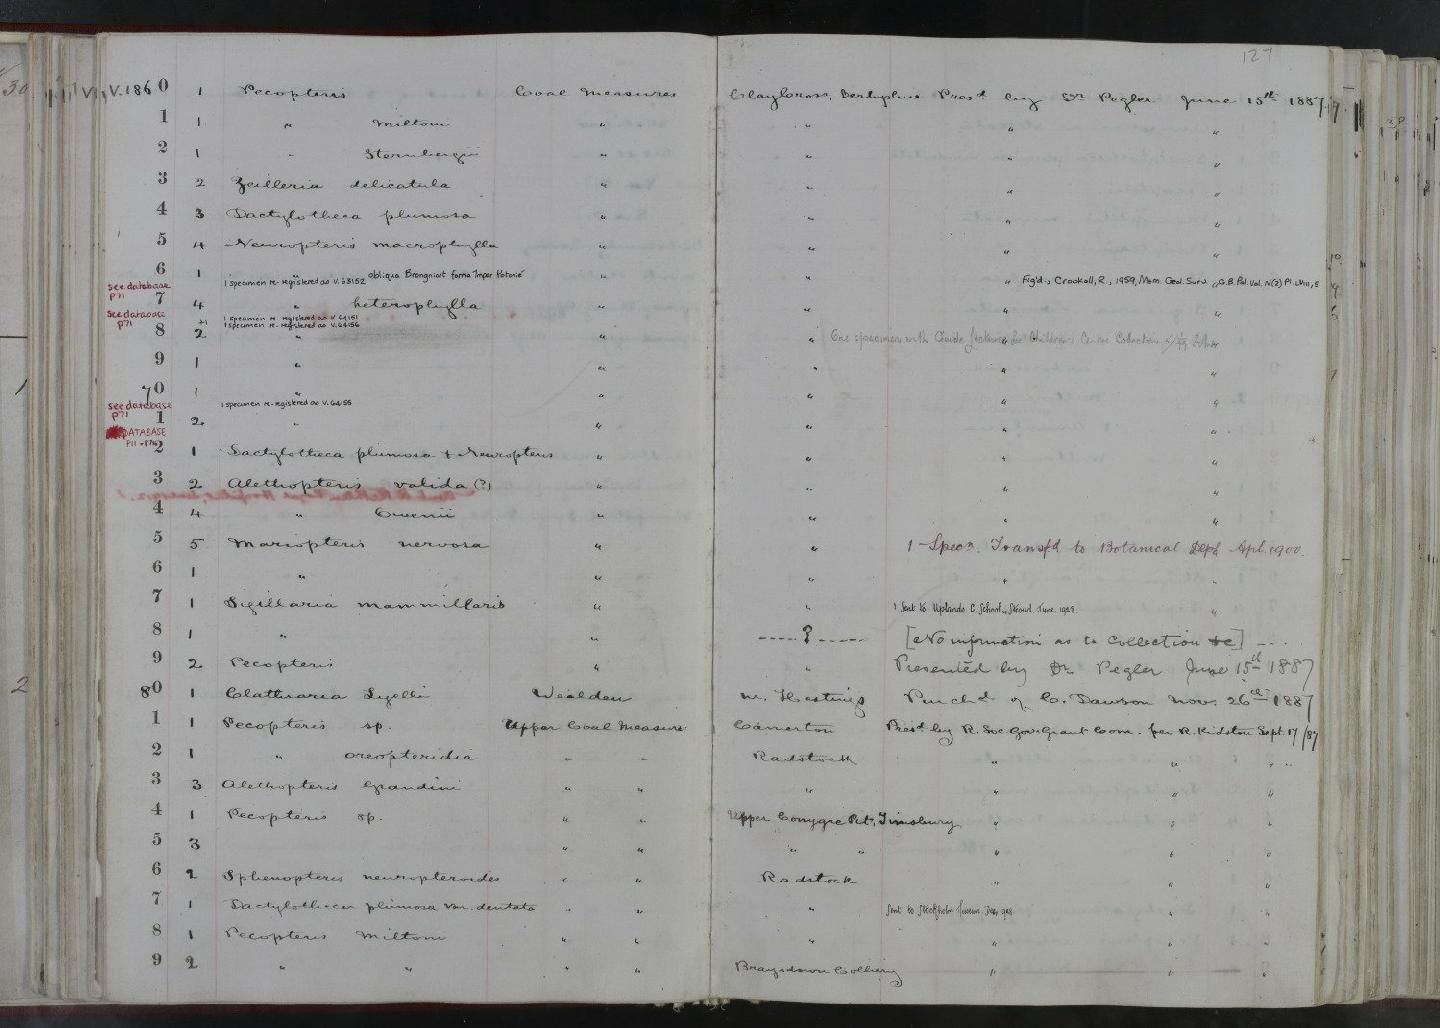 127
V.1860 1 Pecopteris Coal Measures Clay Cross, Derbyshire Presd by Dr Pegler June 15th 1887
1 1 " Miltoni " " " "
2 1 " Sternbergii " " " "
3 2 Zeilleria delicatula " " " "
4 3 Dactylotheca plumosa " " " "
5 4 Neuropteris macrophylla " " " "
6 1 " obliqua Brongniart forma impar Potonié " " " Fig'd., Crookall, R., 1959, Mem. Geol. Surv. G.B. Pal. Vol. IV(2) Pl. LVIII, 5
1 specimen re-registered as V.68152
see database
P71
7 4 " heterophylla " " " "
see database
P71
1 specimen re-registered as V.64151
1 specimen re-registered as V.64156
8 2 " " " One specimen with Guide Lecturer for Children's Centre Collection
9 1 " " " " "
70 1 " " " " "
see database
P71
1 specimen re-registered as V.64155
1 2 " " " " "
DATABASE
2 1 Dactylotheca plumosa + Neuropteris " " " "
3 2 Alethopteris valida (?) " " " "
4 4 " Owenii " " " "
5 5 Mariopteris nervosa " " 1 Specn. Transfd to Botanical Dept Apl. 1900.
6 1 " " " " "
7 1 Sigillaria mammillaris " " 1 Sent to Uplands C. School, Stroud June. 1929 "
8 1 " " ----- ? ----- [No information as to Collection &c] ---
9 2 Pecopteris " " Presented by Dr. Pegler June 15th 1887
80 1 Clathraria Lyelli Wealden nr. Hastings Purchd of C. Dawson Nov. 26th 1887
1 1 Pecopteris sp. Upper Coal Measures Camerton Presd by R. Soc. Gov. Grant Com. per R. Kidston Sept. 17/87
2 1 " oreopteridia " " Radstock " " " "
3 3 Alethopteris Grandini " " " " " "
4 1 Pecopteris sp. " " Upper Conygre Pit, Timsbury " " "
5 3 " " " " " " "
6 2 Sphenopteris neuropteroides " " Radstock " " "
7 1 Dactylotheca plumosa var. dentata " " " Sent to Stockholm Museum " "
8 1 Pecopteris Miltoni " " " " " "
9 2 " " " " Braysdown Colliery " " "